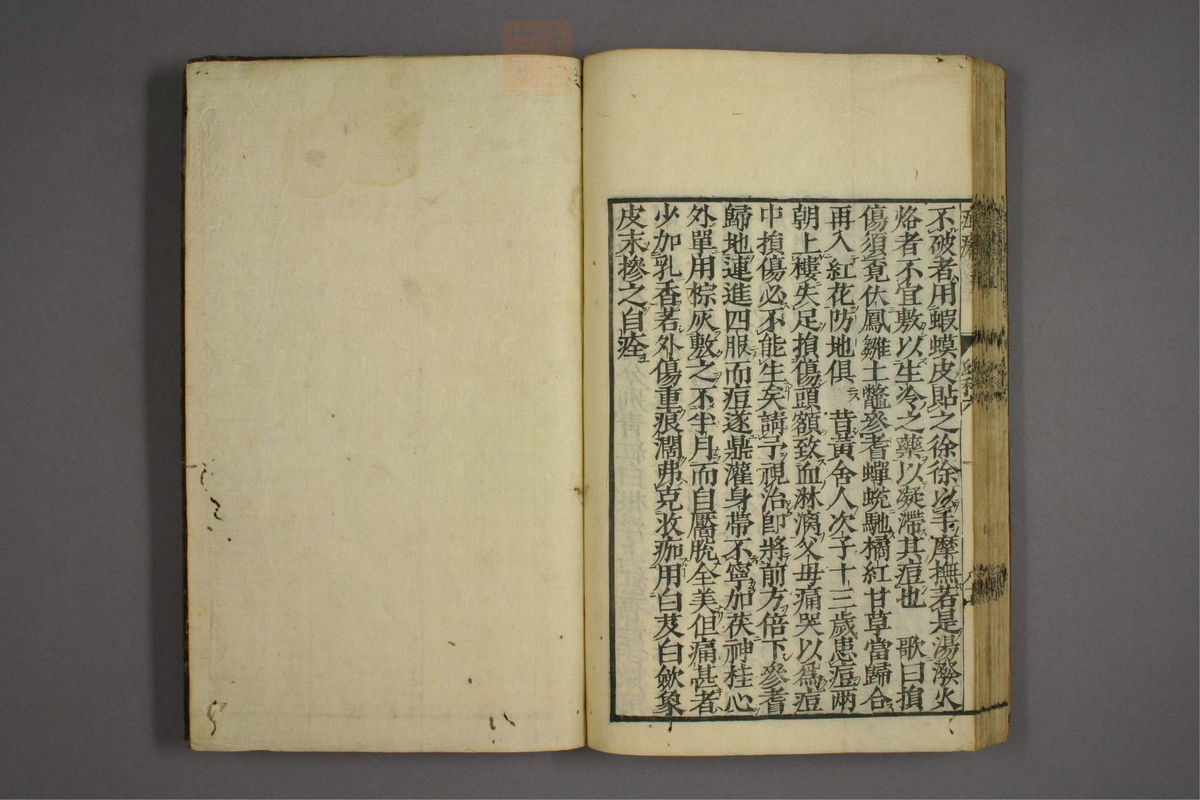 不破者用蝦蟆皮貼之徐徐以手摩撫若是湯潑火
烙者不宜敷以生冷之藥以凝滯其痘也　歌曰損
傷須覓伏鳳雛土鱉參耆蟬蛻馳橘紅甘草當歸合
再入紅花防地俱　昔黃舍人次子十三歲患痘兩
朝上樓失足損傷頭額致血淋漓父母痛哭以為痘
中損傷必不能生矣請予視治卽將前方倍下參耆
歸地連進四服而痘遂鼎灌身帶不寧加茯神桂心
外單用棕灰敷之不半月而自靨脫全美但痛甚者
少加乳香若外傷重痕濶弗克收痂用白芨白斂象
皮末摻之自痊